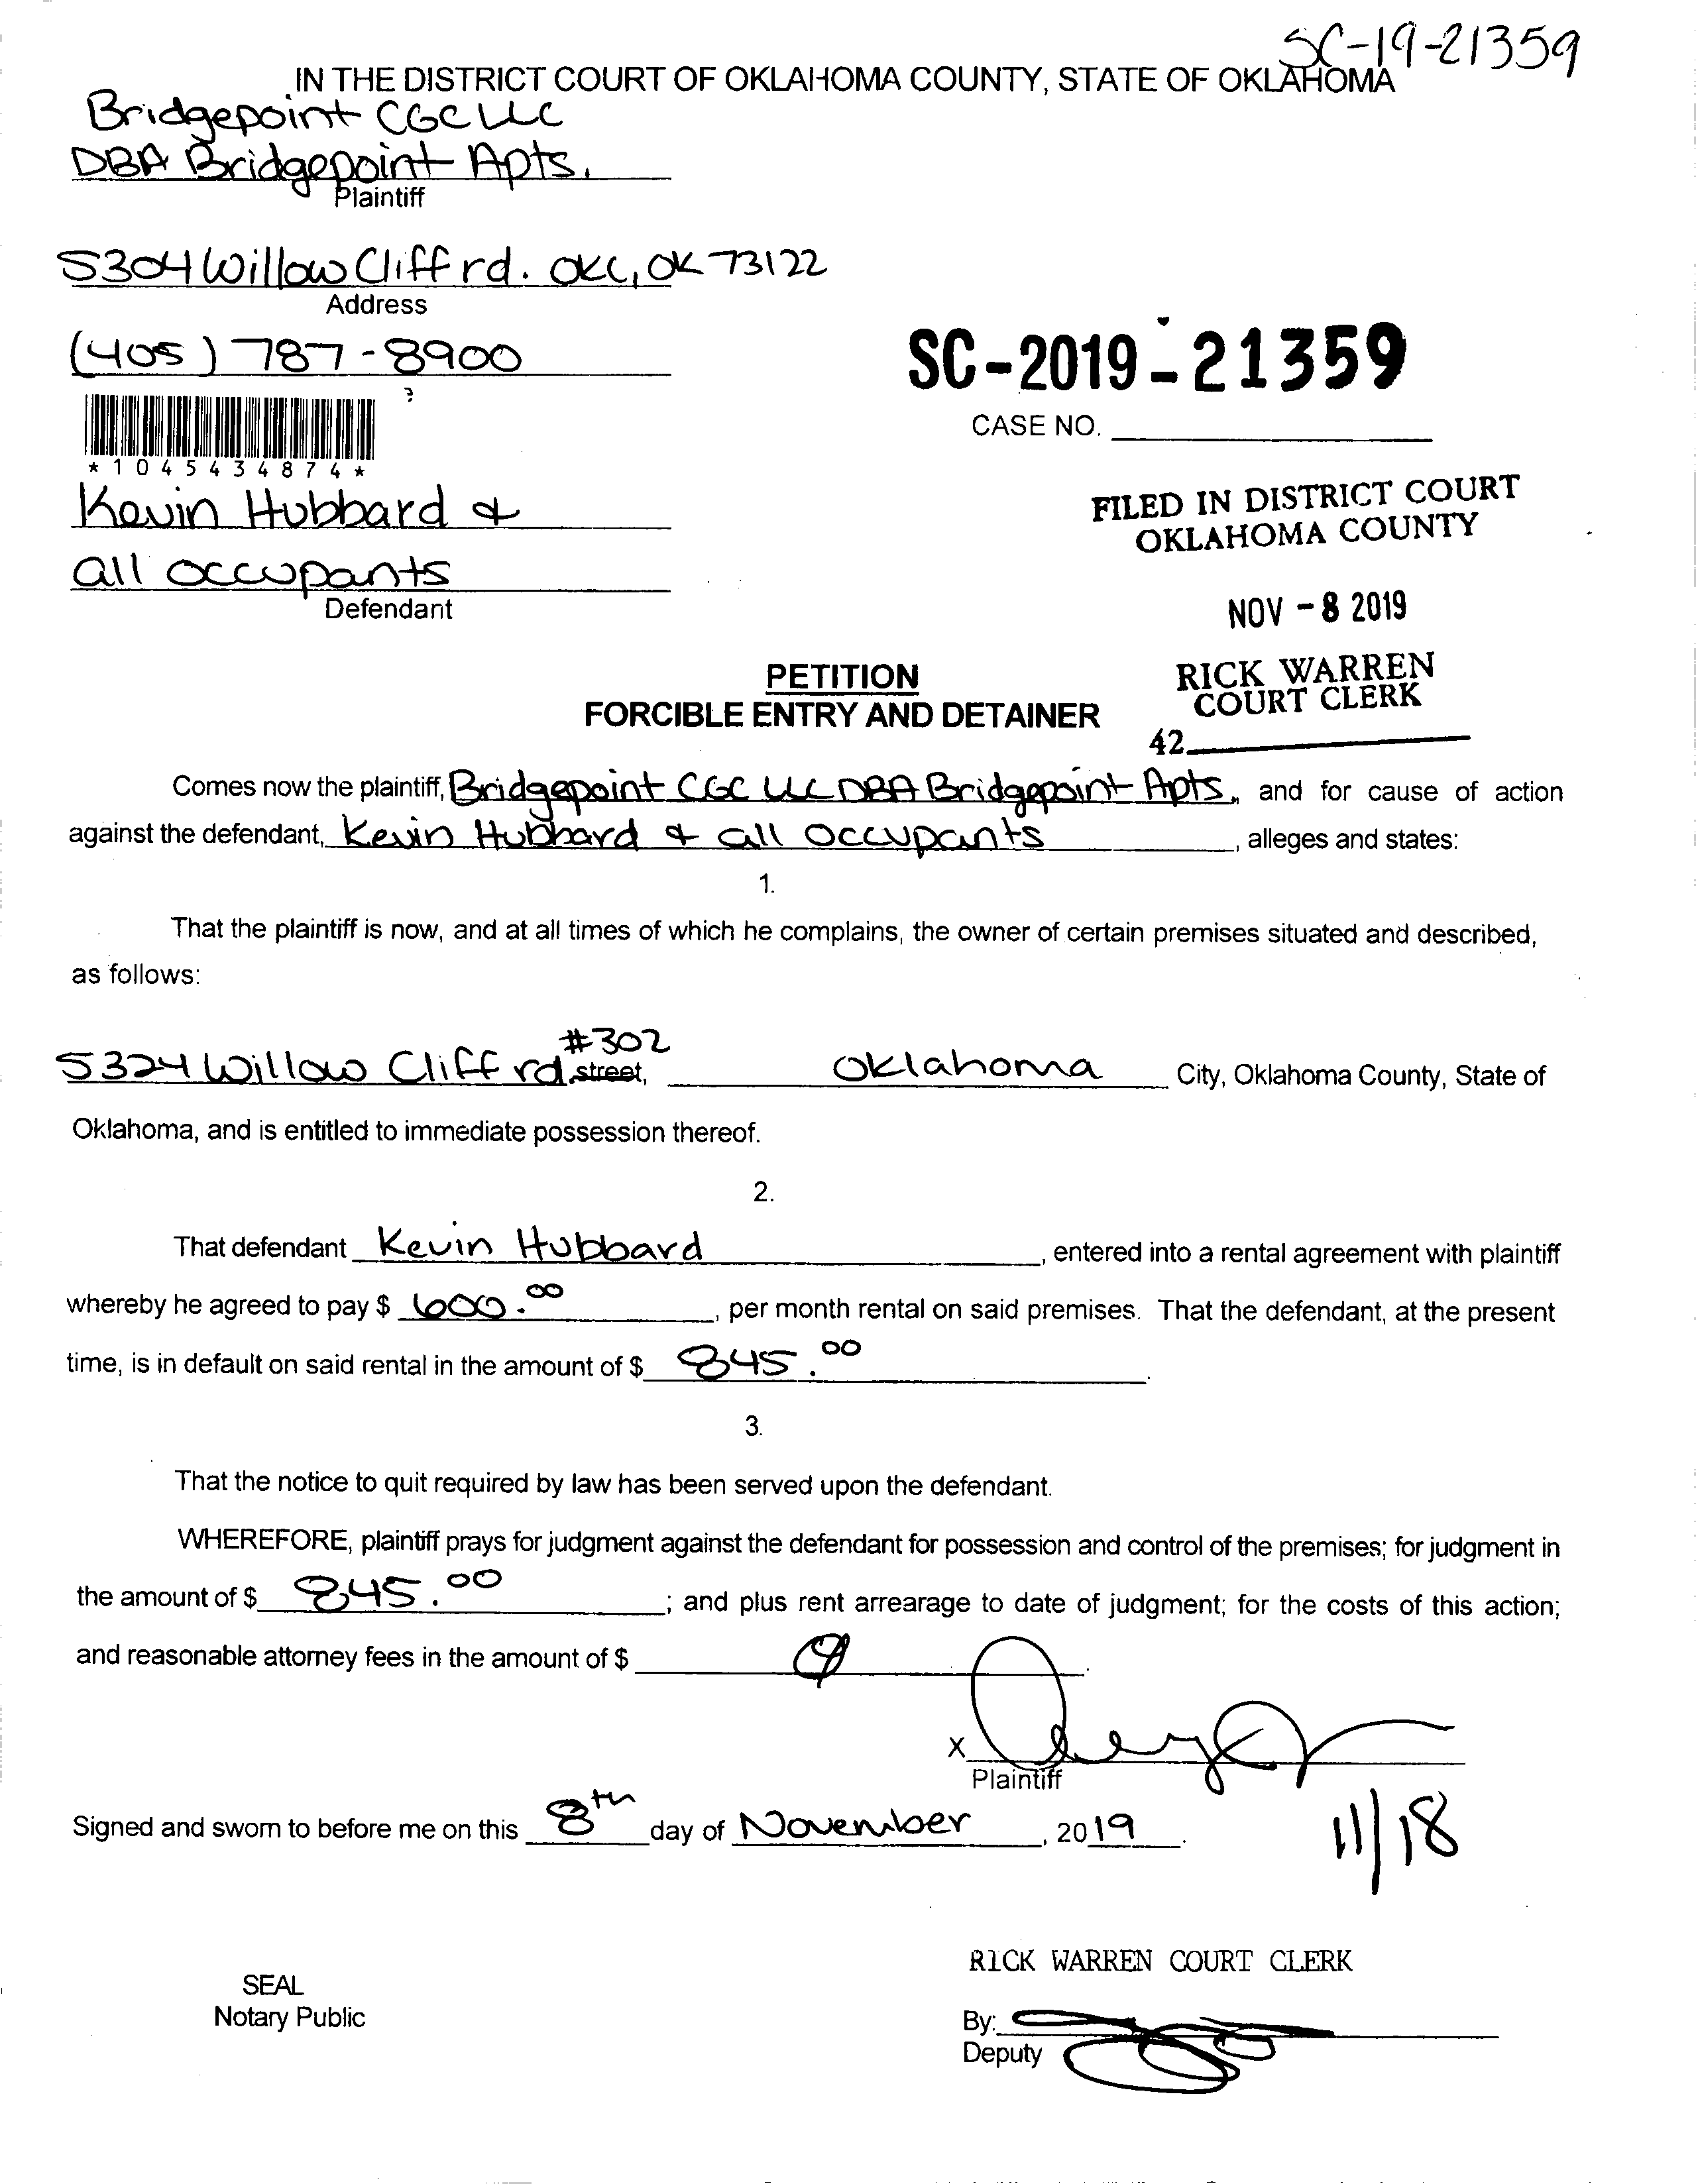 SC-19-21359
IN THE DISTRICT COURT OF OKLAHOMA COUNTY, STATE OF OKLAHOMA
Bridgepoint CGC LLC
DBA Bridgepoint Apts.
Plaintiff
5304 Willow Cliff rd. OKC, OK 73122
Address
(405) 787-8900
SC-2019-21359
CASE NO.
*1045434874*
Kevin Hubbard &
all occupants
Defendant
FILED IN DISTRICT COURT
OKLAHOMA COUNTY
NOV - 8 2019
RICK WARREN
COURT CLERK
42
PETITION
FORCIBLE ENTRY AND DETAINER
Comes now the plaintiff, Bridgepoint CGC LLC DBA Bridgepoint Apts., and for cause of action
against the defendant, Kevin Hubbard & all occupants, alleges and states:
1.
That the plaintiff is now, and at all times of which he complains, the owner of certain premises situated and described,
as follows:
#302
5324 Willow Cliff rd street, Oklahoma City, Oklahoma County, State of
Oklahoma, and is entitled to immediate possession thereof.
2.
That defendant Kevin Hubbard, entered into a rental agreement with plaintiff
whereby he agreed to pay $ 600.00, per month rental on said premises. That the defendant, at the present
time, is in default on said rental in the amount of $ 845.00.
3.
That the notice to quit required by law has been served upon the defendant.
WHEREFORE, plaintiff prays for judgment against the defendant for possession and control of the premises; for judgment in
the amount of $ 845.00; and plus rent arrearage to date of judgment; for the costs of this action;
and reasonable attorney fees in the amount of $
X
Plaintiff
Signed and sworn to before me on this 8th day of November, 2019.
11/18
RICK WARREN COURT CLERK
SEAL
Notary Public
By:
Deputy